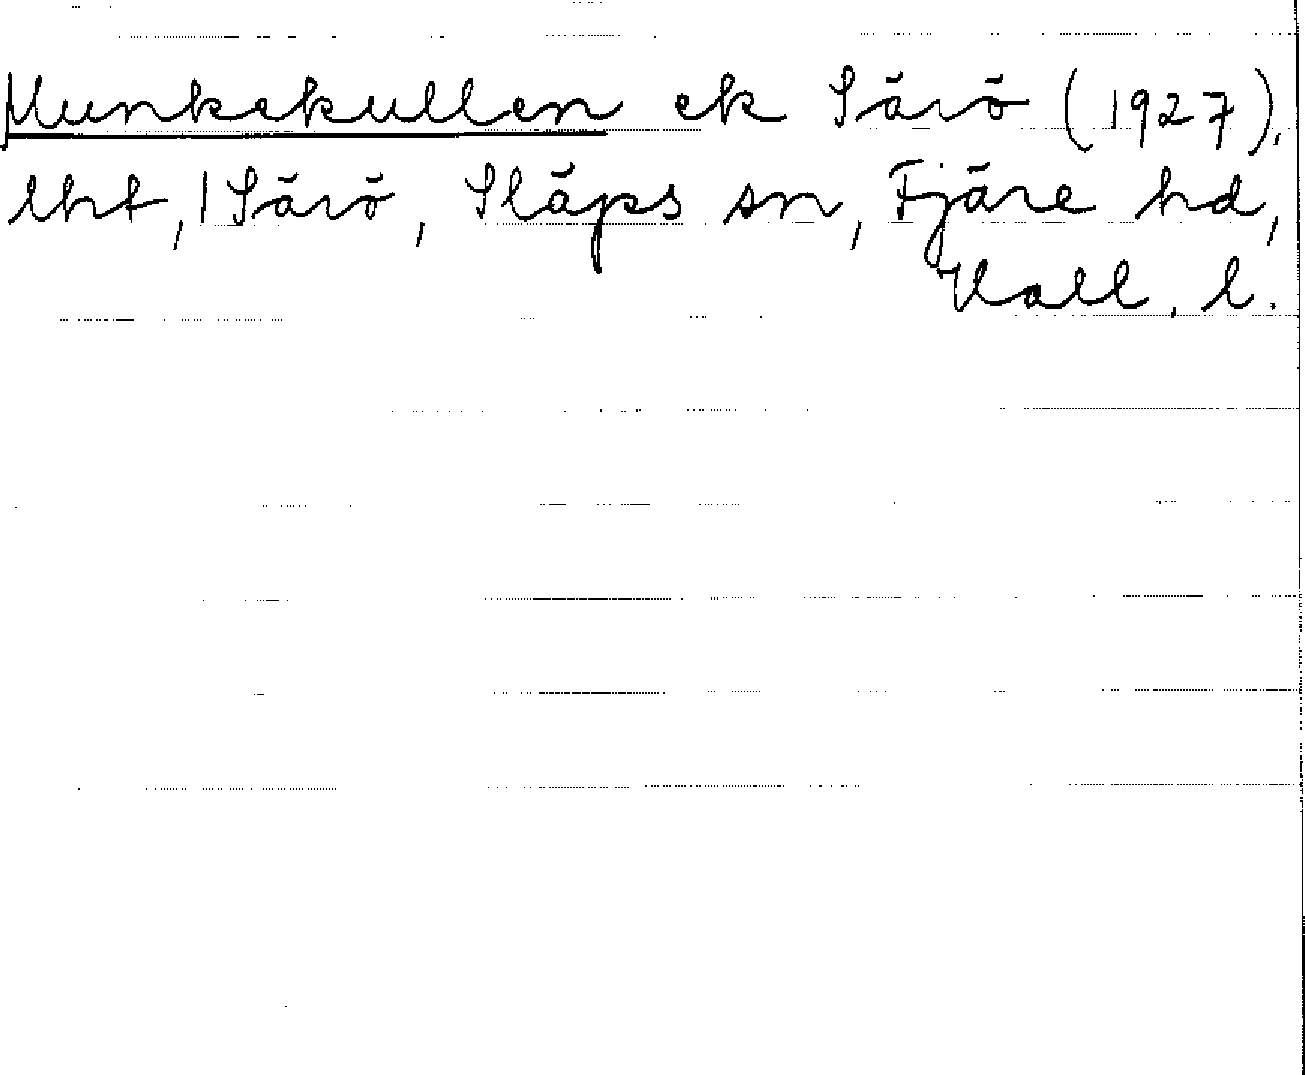 Munkekullen ek Särö (1927),
lht, 1 Särö, Släps sn, Fjäre hd,
Hall. l.